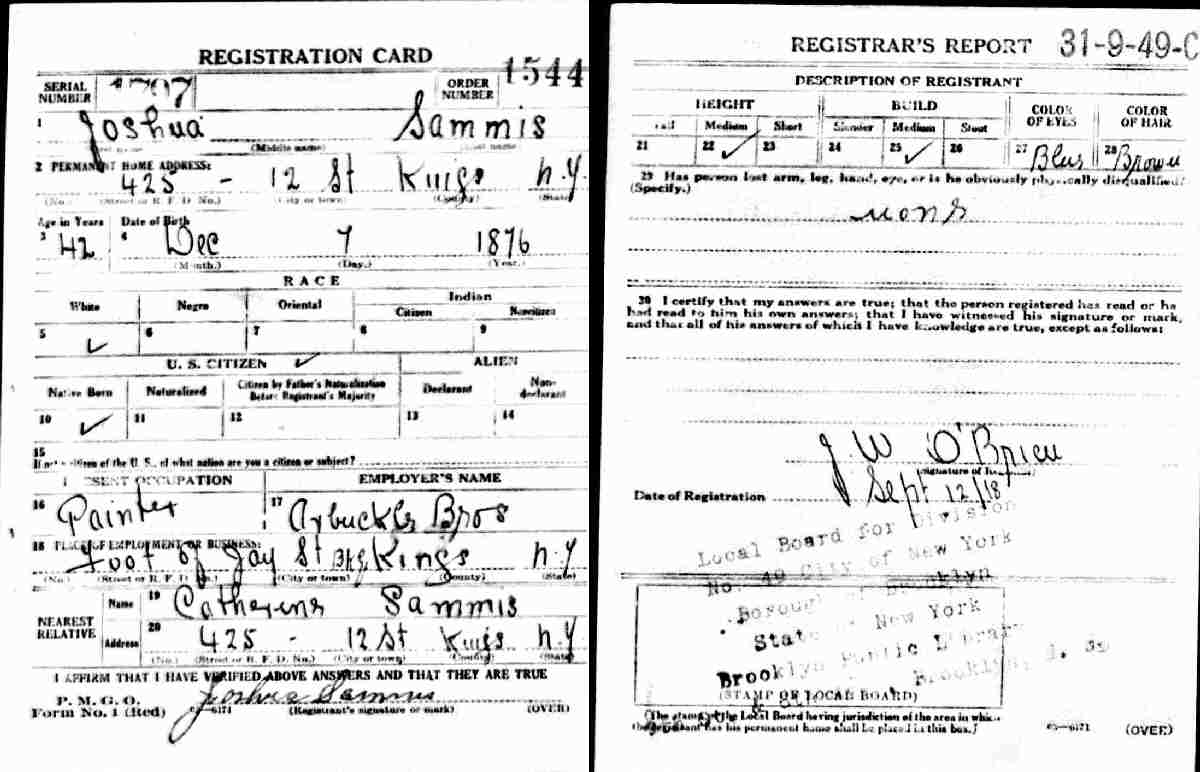 REGISTRATION CARD
SERIAL NUMBER 1707 ORDER NUMBER 1544
1 Joshua Sammis
(Middle name)
2 PERMANENT HOME ADDRESS:
425 - 12 St Kings N.Y.
(No.) (Street or R. F. D. No.) (City or town) (County) (State)
Age in Years Date of Birth
3 42 4 Dec 7 1876
(Month.) (Day.) (Year.)
RACE
White Negro Oriental Indian
Citizen Noncitizen
5 ✓ 6 7 8 9
U. S. CITIZEN ✓ ALIEN
Native Born Naturalized Citizen by Father's Naturalization Before Registrant's Majority Declarant Non-declarant
10 ✓ 11 12 13 14
15
If not a citizen of the U. S., of what nation are you a citizen or subject?
PRESENT OCCUPATION EMPLOYER'S NAME
16 Painter 17 Arbuckle Bros
18 PLACE OF EMPLOYMENT OR BUSINESS:
Foot of Jay St Bkg Kings N.Y
(No.) (Street or R. F. D. No.) (City or town) (County) (State)
NEAREST RELATIVE
Name 19 Catherine Sammis
Address 20 425 - 12 St Kings N.Y
(No.) (Street or R. F. D. No.) (City or town) (County) (State)
I AFFIRM THAT I HAVE VERIFIED ABOVE ANSWERS AND THAT THEY ARE TRUE
P. M. G. O.
Form No. 1 (Red) 03—6171 Joshua Sammis
(Registrant's signature or mark) (OVER)
REGISTRAR'S REPORT 31-9-49-C
DESCRIPTION OF REGISTRANT
HEIGHT BUILD COLOR OF EYES COLOR OF HAIR
Tall Medium Short Slender Medium Stout
21 22 ✓ 23 24 25 ✓ 26 27 Blue 28 Brown
29 Has person lost arm, leg, hand, eye, or is he obviously physically disqualified?
(Specify.)
none
30 I certify that my answers are true; that the person registered has read or has
had read to him his own answers; that I have witnessed his signature or mark,
and that all of his answers of which I have knowledge are true, except as follows:
J. W O'Brien
(Signature of
Date of Registration Sept 12/18
Local Board for Division
No. 49 City of New York
Borough of Brooklyn
State of New York
Brooklyn Public Library
Brooklyn,
(STAMP OF LOCAL BOARD)
(The stamp of the Local Board having jurisdiction of the area in which
the registrant has his permanent home shall be placed in this box.)
03—6171 (OVER)